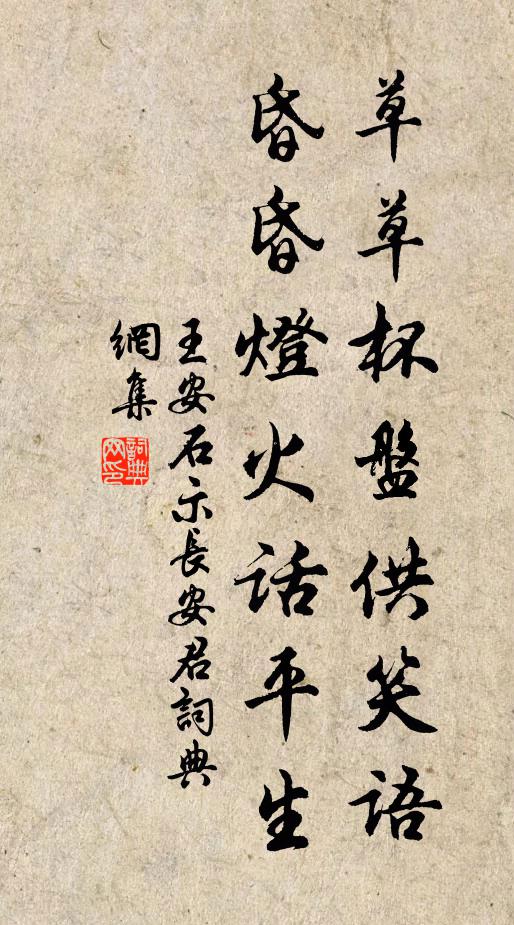 草草杯盤供笑語
昏昏燈火話平生
王安石示長安君詞典
網集
詞典
网印